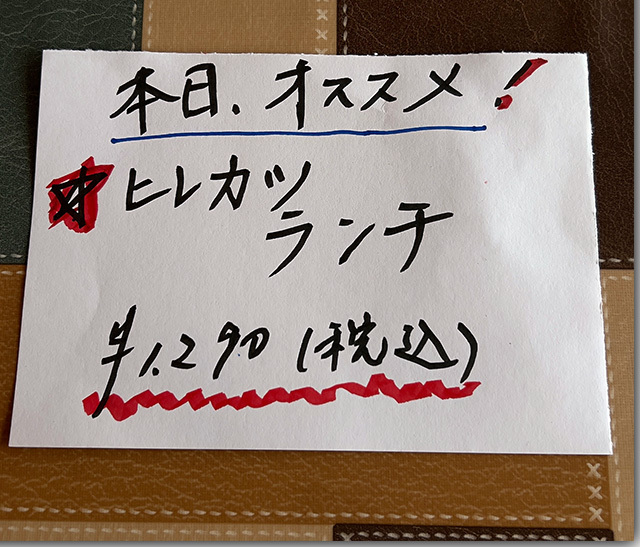 本日、オススメ!
☆ヒレカツ
ランチ
¥1,290(税込)